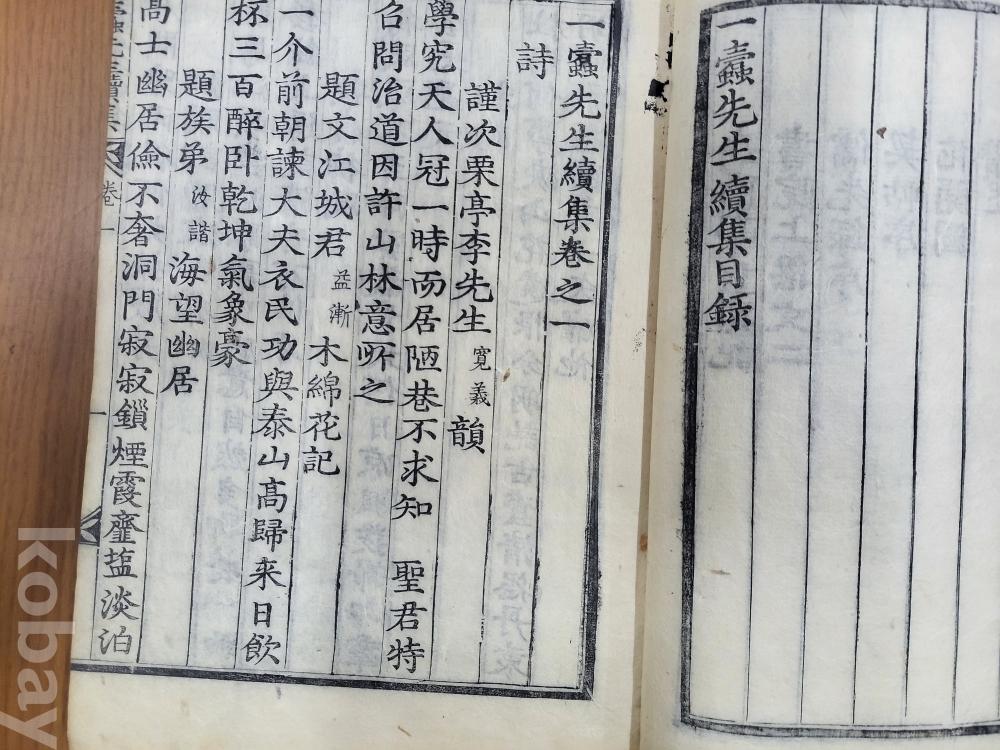 一蠹先生續集目録
一蠹先生續集卷之一
詩
謹次栗亭李先生寛義韻
學究天人冠一時而居陋巷不求知　聖君特
召問治道因許山林意所之
題文江城君益漸木綿花記
一介前朝諫大夫衣民功與泰山髙歸来日飲
杯三百醉卧乾坤氣象豪
題族弟汝諧海望幽居
髙士幽居儉不奢洞門寂寂鎖煙霞虀塩淡泊
先生續集
卷一
一
kobay